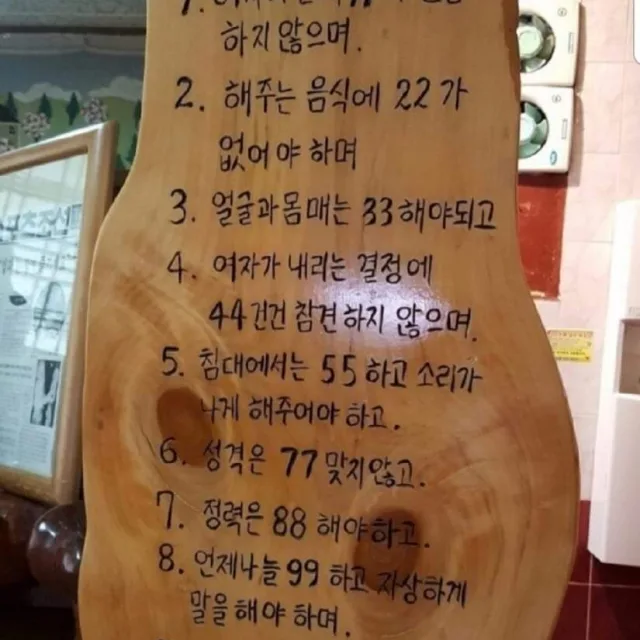 하지 않으며.
2. 해주는 음식에 22가
없어야 하며
3. 얼굴과 몸매는 33해야되고
4. 여자가 내리는 결정에
44건건 참견하지 않으며.
5. 침대에서는 55하고 소리가
나게 해주어야 하고.
6. 성격은 77맞지않고.
7. 정력은 88해야하고.
8. 언제나늘 99하고 자상하게
말을 해야 하며.